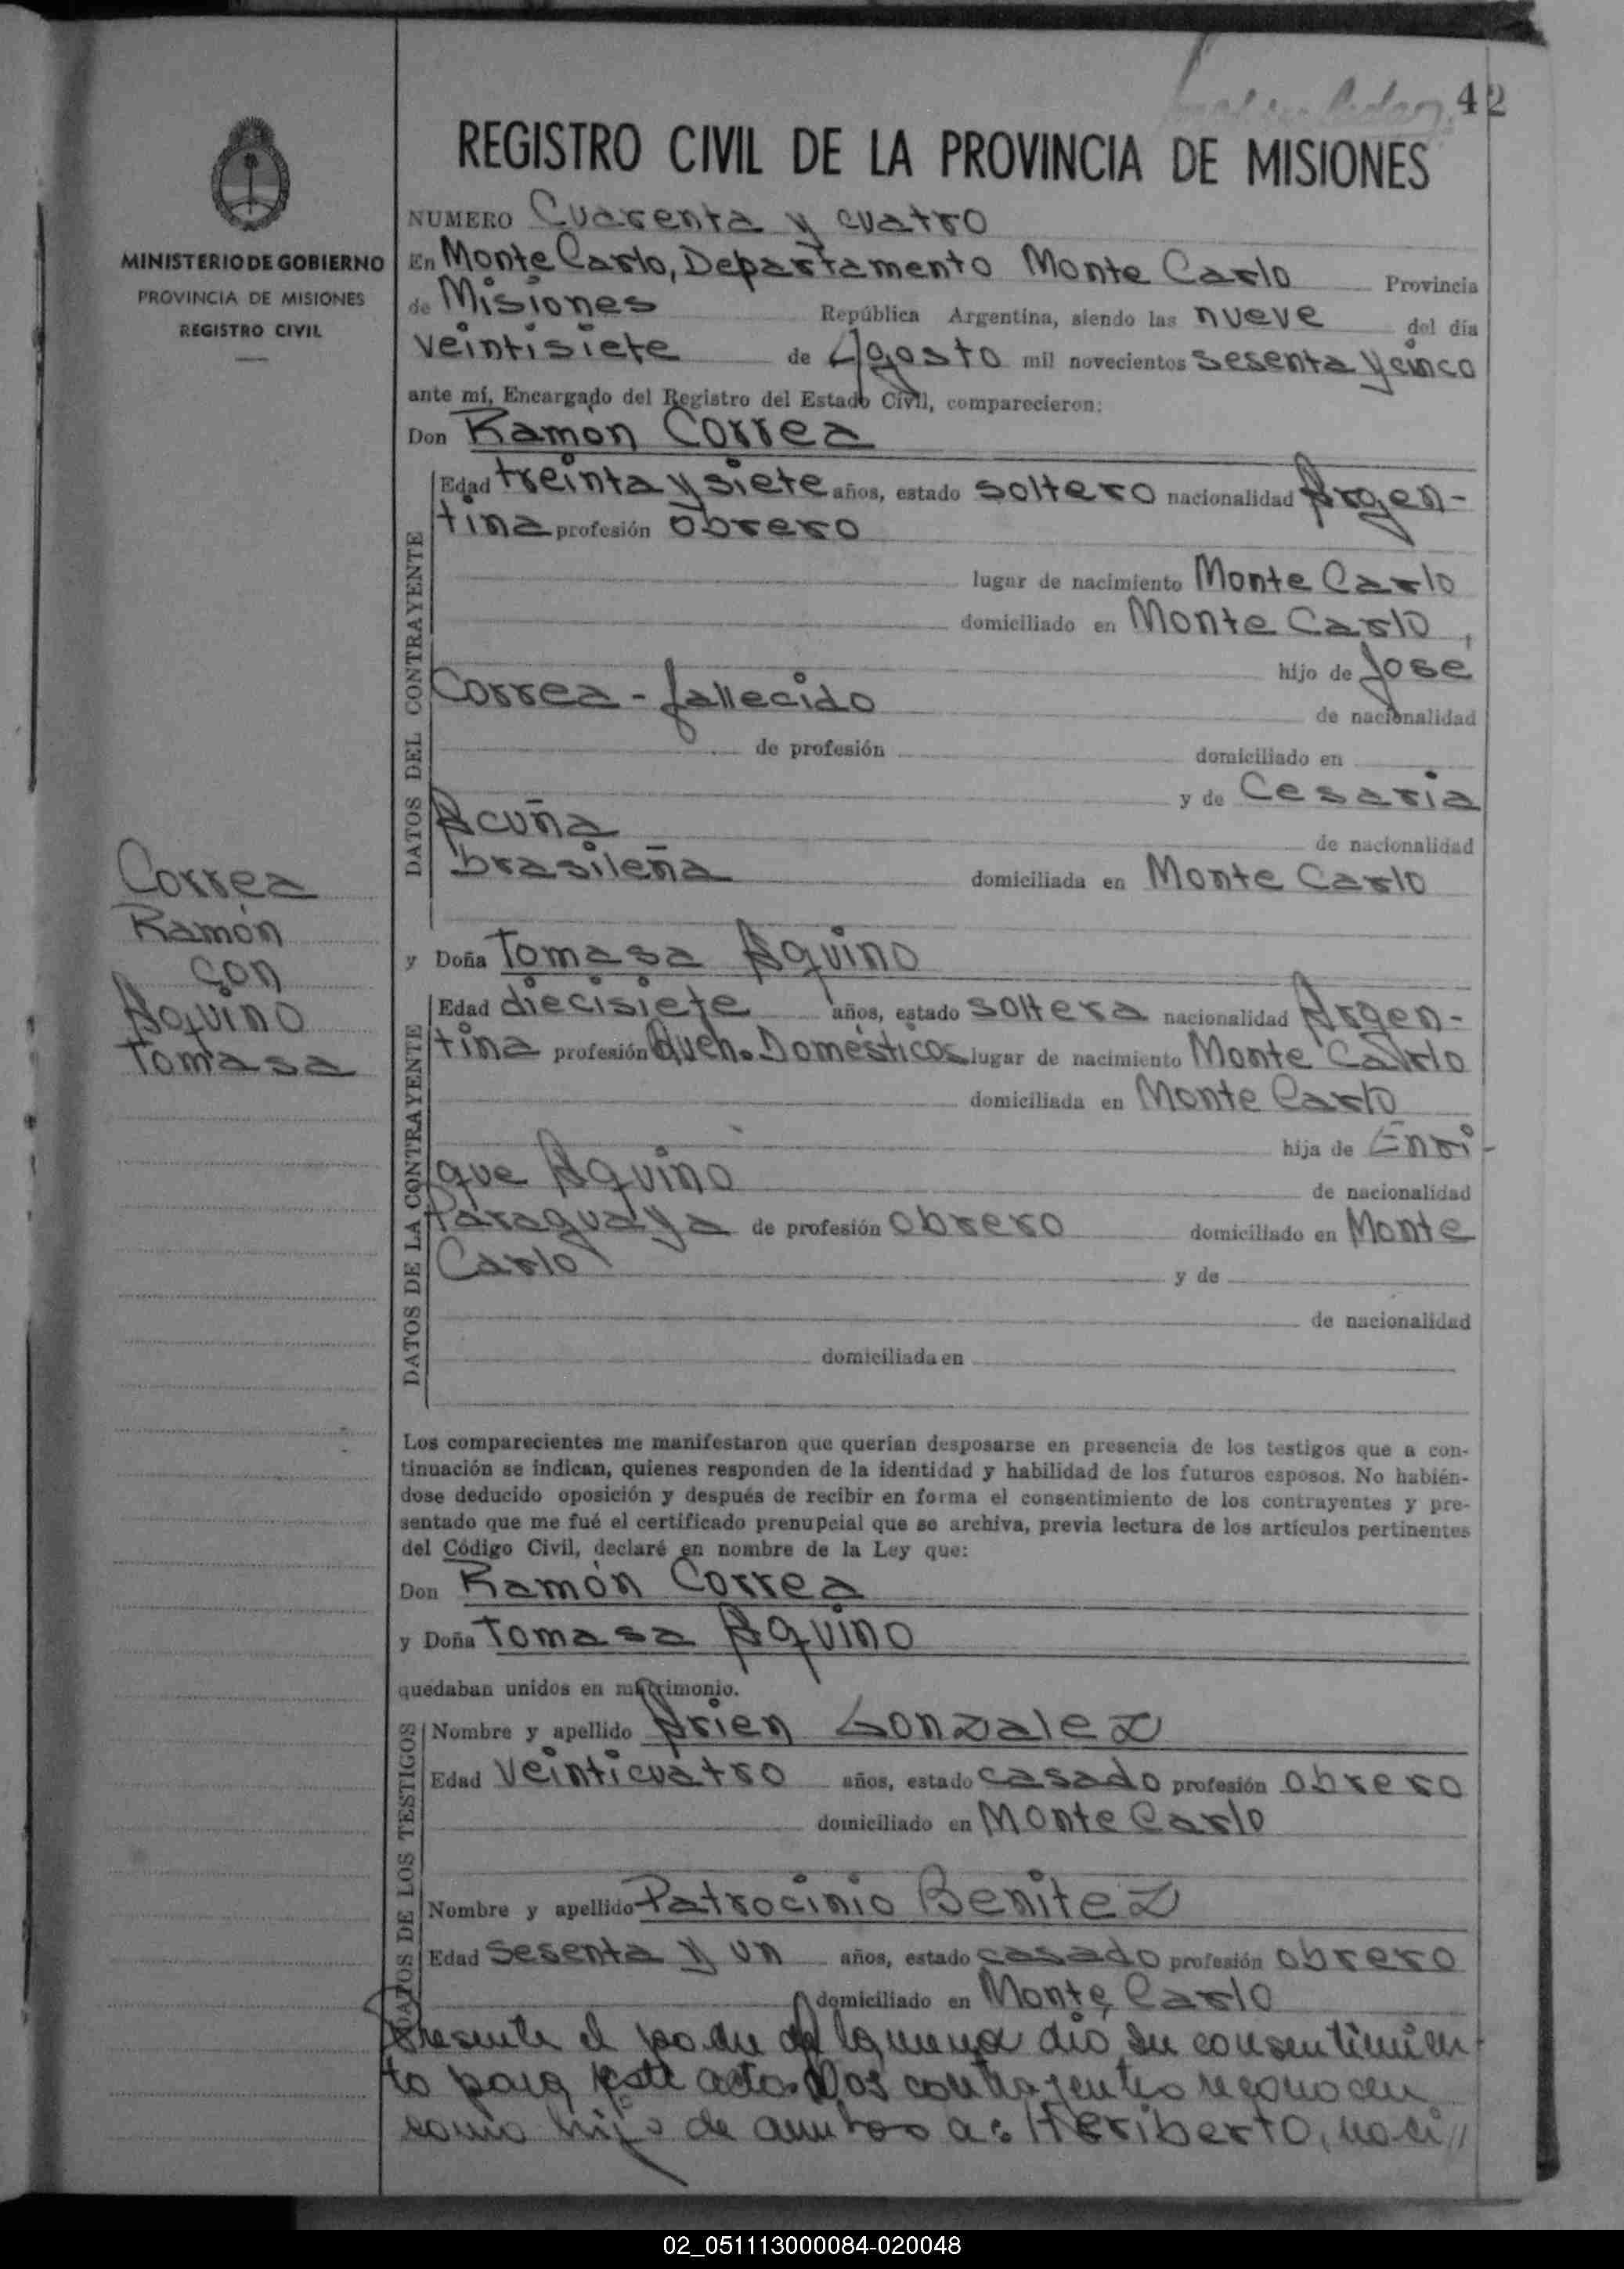 42
REGISTRO CIVIL DE LA PROVINCIA DE MISIONES
MINISTERIO DE GOBIERNO
PROVINCIA DE MISIONES
REGISTRO CIVIL
NUMERO Cuarenta y cuatro
En Monte Carlo, Departamento Monte Carlo Provincia
de Misiones República Argentina, siendo las nueve del día
veintisiete de Agosto mil novecientos sesenta y cinco
ante mí, Encargado del Registro del Estado Civil, comparecieron:
Don Ramón Correa
DATOS DEL CONTRAYENTE
Edad treinta y siete años, estado soltero nacionalidad Argen-
tina profesión obrero
lugar de nacimiento Monte Carlo
domiciliado en Monte Carlo,
hijo de José
Correa - fallecido de nacionalidad
de profesión domiciliado en
y de Cesaria
Acuña de nacionalidad
brasileña domiciliada en Monte Carlo
Correa
Ramón
con
Aquino
Tomasa
y Doña Tomasa Aquino
DATOS DE LA CONTRAYENTE
Edad diecisiete años, estado soltera nacionalidad Argen-
tina profesión Queh. Domésticos lugar de nacimiento Monte Carlo
domiciliada en Monte Carlo
hija de Enri-
que Aquino de nacionalidad
Paraguaya de profesión obrero domiciliado en Monte
Carlo y de
de nacionalidad
domiciliada en
Los comparecientes me manifestaron que querían desposarse en presencia de los testigos que a con-
tinuación se indican, quienes responden de la identidad y habilidad de los futuros esposos. No habién-
dose deducido oposición y después de recibir en forma el consentimiento de los contrayentes y pre-
sentado que me fué el certificado prenupcial que se archiva, previa lectura de los artículos pertinentes
del Código Civil, declaré en nombre de la Ley que:
Don Ramón Correa
y Doña Tomasa Aquino
quedaban unidos en matrimonio.
DATOS DE LOS TESTIGOS
Nombre y apellido Arien Gonzalez
Edad veinticuatro años, estado casado profesión obrero
domiciliado en Monte Carlo
Nombre y apellido Patrocinio Benitez
Edad sesenta y un años, estado casado profesión obrero
domiciliado en Monte Carlo
Presente el padre de la menor dio su consentimien-
to para este acto. Los contrayentes reconocen
como hijo de ambos a: Heriberto, naci//
02_051113000084-020048